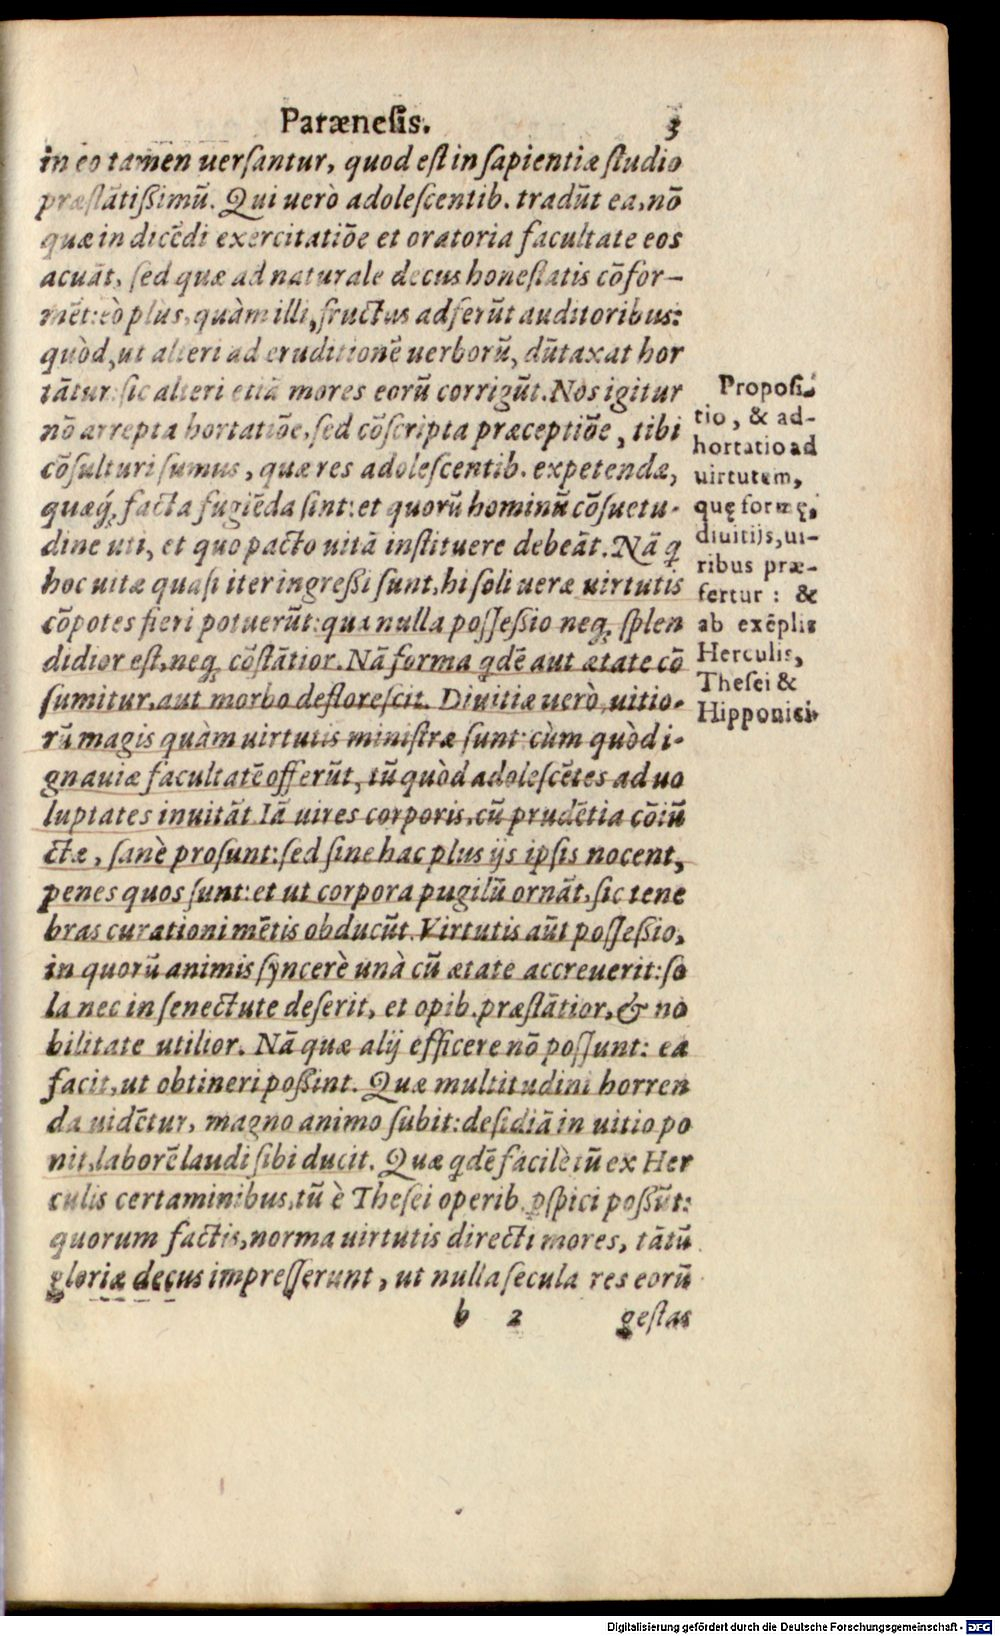 Parænesis. 3
in eo tamen uersantur, quod est in sapientiæ studio
præstātißimū. Qui uerò adolescentib. tradūt ea, nō
quæ in dicēdi exercitatiōe et oratoria facultate eos
acuāt, sed quæ ad naturale decus honestatis cōfor-
mēt: eò plùs, quàm illi, fructus adferūt auditoribus:
quòd, ut alteri ad eruditionē uerborū, dūtaxat hor
tātur: sic alteri etiā mores eorū corrigūt. Nos igitur
nō arrepta hortatiōe, sed cōscripta præceptiōe, tibi
cōsulturi sumus, quæ res adolescentib. expetendæ,
quæq́; facta fugiēda sint: et quorū hominū cōsuetu-
dine uti, et quo pacto uitā instituere debeāt. Nā q
hoc uitæ quasi iter ingreßi sunt, hi soli ueræ uirtutis
cōpotes fieri potuerūt: qua nulla possessio neq; splen
didior est, neq; cōstātior. Nā forma qdē aut ætate cō
sumitur, aut morbo deflorescit. Diuitiæ uerò, uitio-
rū magis quàm uirtutis ministræ sunt: cùm quòd i-
gnauiæ facultatē offerūt, tū quòd adolescētes ad uo
luptates inuitāt. Iā uires corporis, cū prudētia cōiū
ctæ, sanè prosunt: sed sine hac plus ijs ipsis nocent,
penes quos sunt: et ut corpora pugilū ornāt, sic tene
bras curationi mētis obducūt. Virtutis aūt possessio,
in quorū animis syncerè unà cū ætate accreuerit: so
la nec in senectute deserit, et opib. præstātior, & no
bilitate utilior. Nā quæ alij efficere nō possunt: ea
facit, ut obtineri poßint. Quæ multitudini horren
da uidētur, magno animo subit: desidiā in uitio po
nit, laborē laudi sibi ducit. Quæ qdē facilè tū ex Her
culis certaminibus, tū è Thesei operib. pspici possūt:
quorum factis, norma uirtutis directi mores, tātū
gloriæ decus impresserunt, ut nulla secula res eorū
b 2 gestas
Proposi-
tio, & ad-
hortatio ad
uirtutem,
quę formę,
diuitijs, ui-
ribus præ-
fertur: &
ab exēplis
Herculis,
Thesei &
Hipponici.
Digitalisierung gefördert durch die Deutsche Forschungsgemeinschaft - DFG